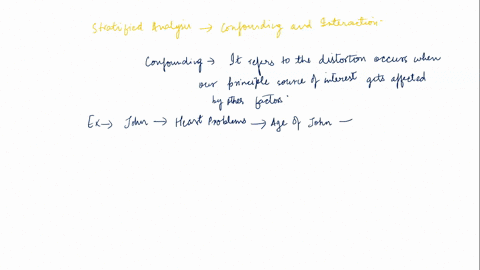 Stratified Analysis → Confounding and Interaction.
Confounding → It refers to the distortion occurs when
our principle source of interest gets affected
by other factors.
Ex → John → Heart Problems → Age of John —